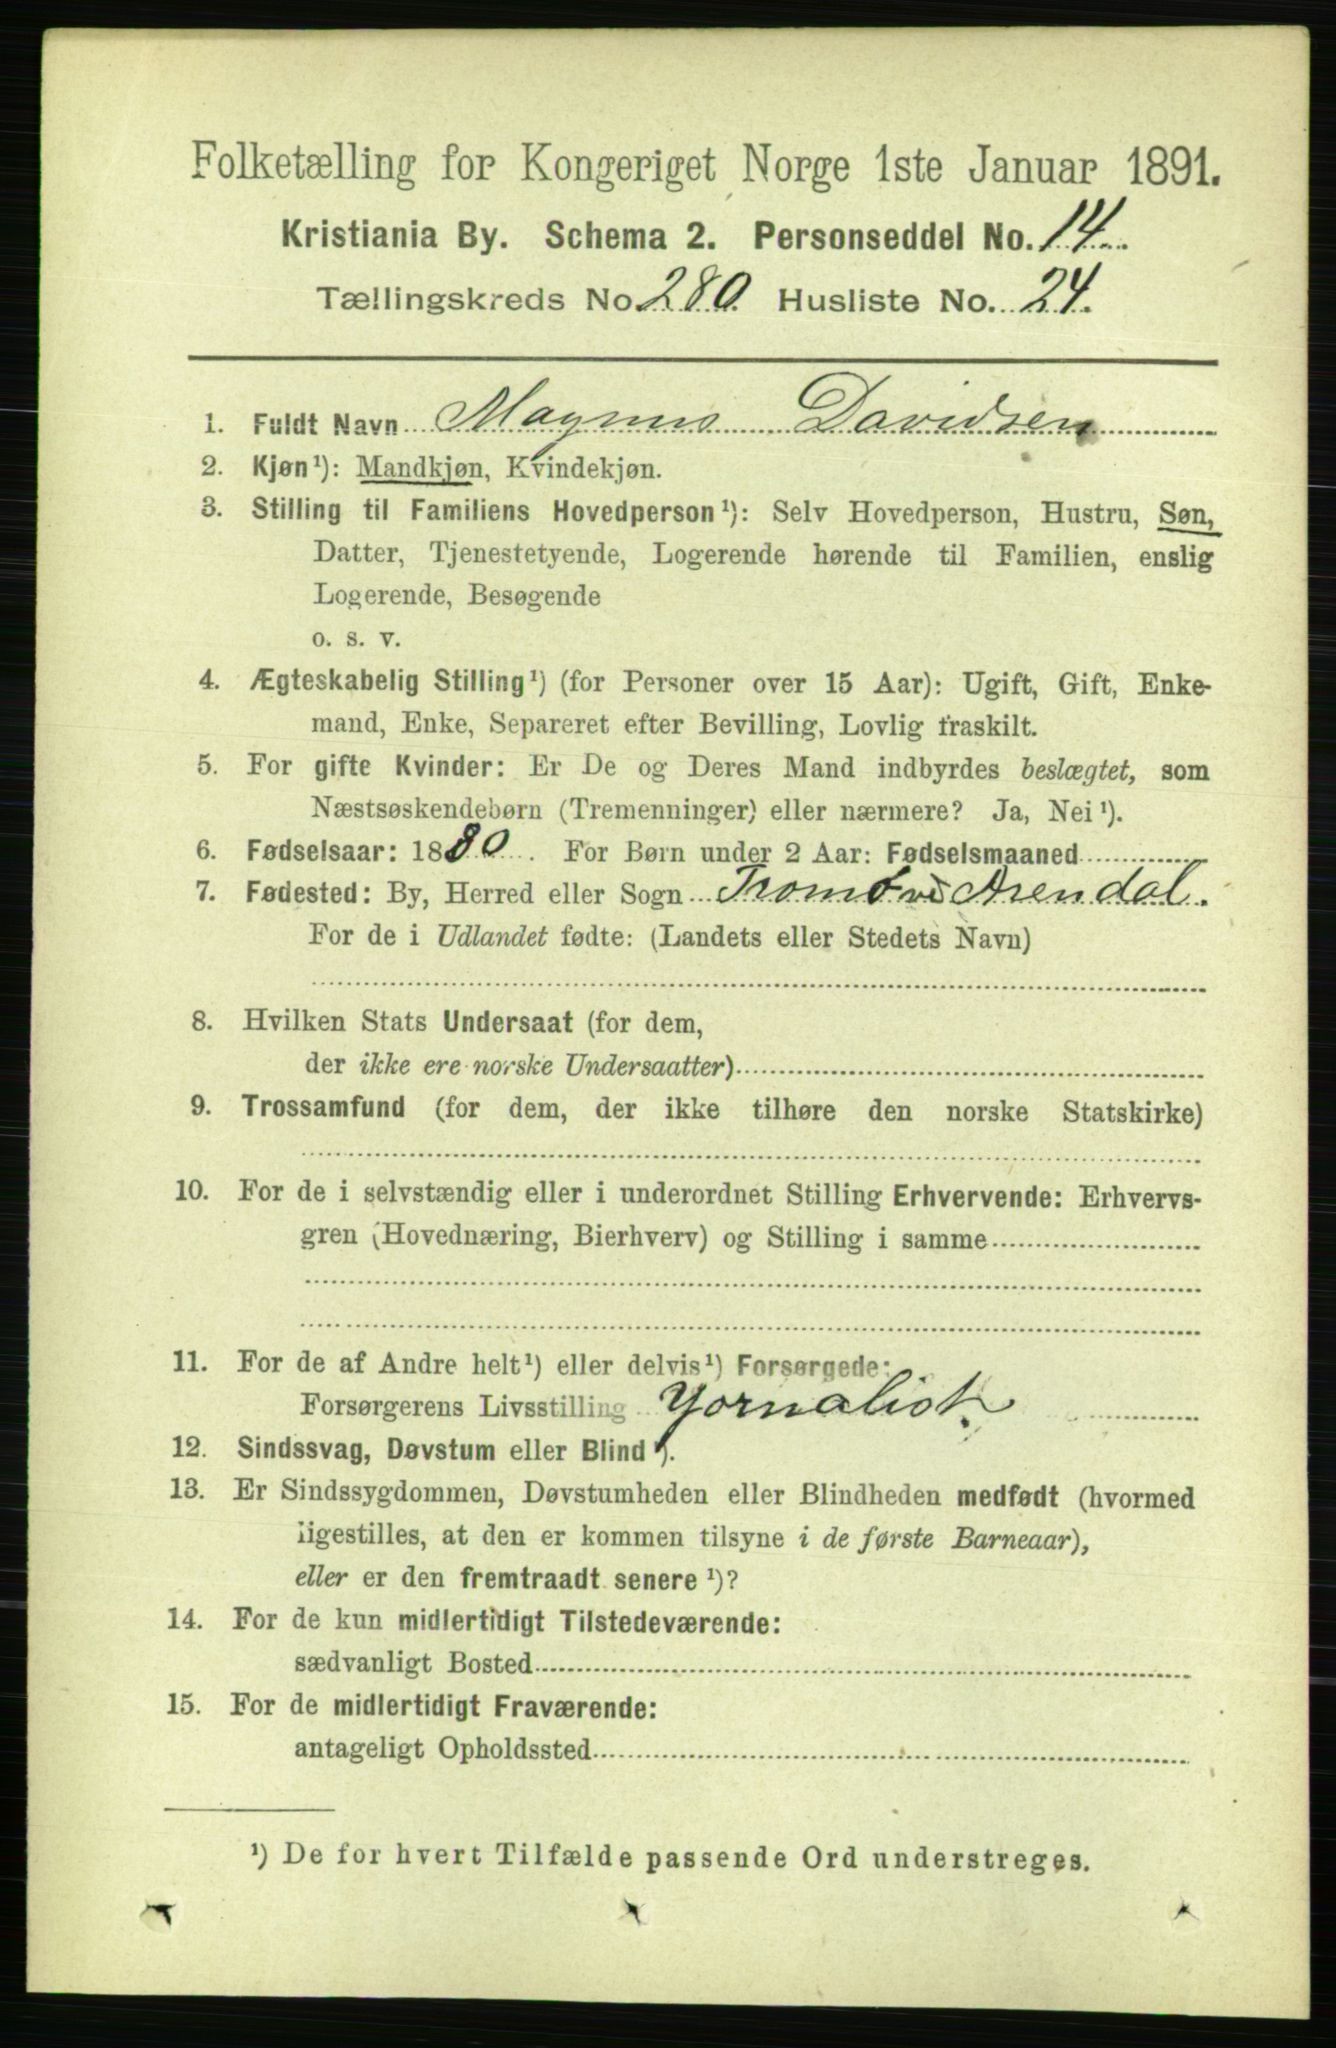 Folketælling for Kongeriget Norge 1ste Januar 1891.
Kristiania By. Schema 2. Personseddel No. 14
Tællingskreds No. 280 Husliste No. 24.
1. Fuldt Navn Magnus Davidsen
2. Kjøn¹): Mandkjøn, Kvindekjøn.
3. Stilling til Familiens Hovedperson¹): Selv Hovedperson, Hustru, Søn,
Datter, Tjenestetyende, Logerende hørende til Familien, enslig
Logerende, Besøgende
o. s. v.
4. Ægteskabelig Stilling¹) (for Personer over 15 Aar): Ugift, Gift, Enke-
mand, Enke, Separeret efter Bevilling, Lovlig fraskilt.
5. For gifte Kvinder: Er De og Deres Mand indbyrdes beslægtet, som
Næstsøskendebørn (Tremenninger) eller nærmere? Ja, Nei¹).
6. Fødselsaar: 1880. For Børn under 2 Aar: Fødselsmaaned
7. Fødested: By, Herred eller Sogn Tromø vd Arendal.
For de i Udlandet fødte: (Landets eller Stedets Navn)
8. Hvilken Stats Undersaat (for dem,
der ikke ere norske Undersaatter)
9. Trossamfund (for dem, der ikke tilhøre den norske Statskirke)
10. For de i selvstændig eller i underordnet Stilling Erhvervende: Erhvervs-
gren (Hovednæring, Bierhverv) og Stilling i samme
11. For de af Andre helt¹) eller delvis¹) Forsørgede:
Forsørgerens Livsstilling Yornalist.
12. Sindssvag, Døvstum eller Blind¹).
13. Er Sindssygdommen, Døvstumheden eller Blindheden medfødt (hvormed
ligestilles, at den er kommen tilsyne i de første Barneaar),
eller er den fremtraadt senere¹)?
14. For de kun midlertidigt Tilstedeværende:
sædvanligt Bosted
15. For de midlertidigt Fraværende:
antageligt Opholdssted
¹) De for hvert Tilfælde passende Ord understreges.